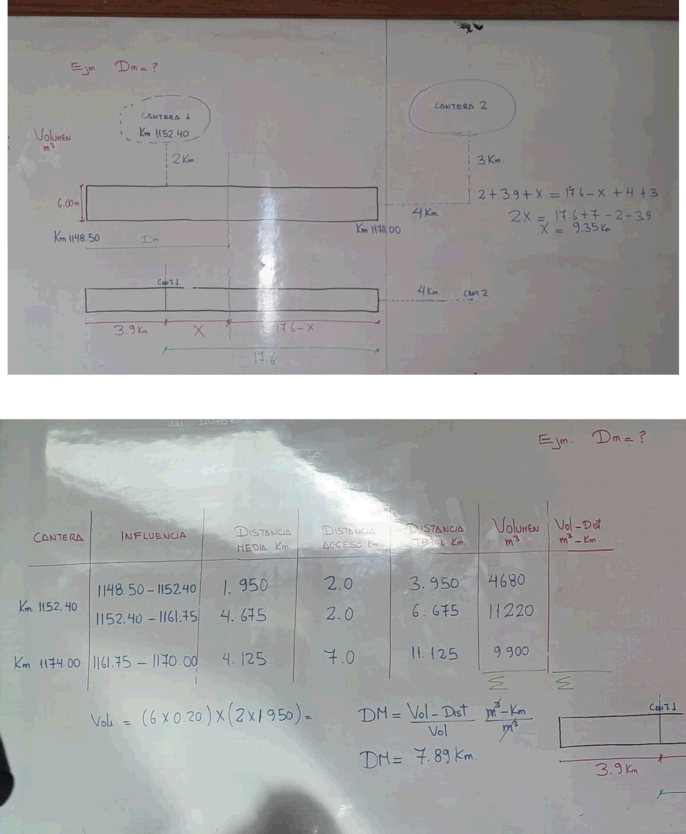 Ejm. Dm = ?
CANTERA 1
Km 1152.40
CANTERA 2
VOLUMEN
m³
2 Km.
3 Km.
6.00m
4 Km
2 + 3.9 + X = 17.6 - X + 4 + 3
2X = 17.6 + 7 - 2 - 3.9
X = 9.35 Km
Km 1148.50
Dm
Km 1170.00
CANT.1
4 Km
CANT 2
3.9 Km
X
17.6 - X
17.6
Ejm. Dm = ?
CANTERA
INFLUENCIA
DISTANCIA
MEDIA Km
DISTANCIA
ACCESO Km.
DISTANCIA
TOTAL Km.
VOLUMEN
m³
Vol - Dist
m³ - Km.
1148.50 - 1152.40 1.950 2.0 3.950 4680
Km 1152.40
1152.40 - 1161.75 4.675 2.0 6.675 11220
Km 1174.00 1161.75 - 1170.00 4.125 7.0 11.125 9900
Σ Σ
Vol₁ = (6 X 0.20) X (2 X 1950) =
DM = Vol - Dist / Vol m³ - Km / m³
DM = 7.89 Km.
CANT.1
3.9 Km